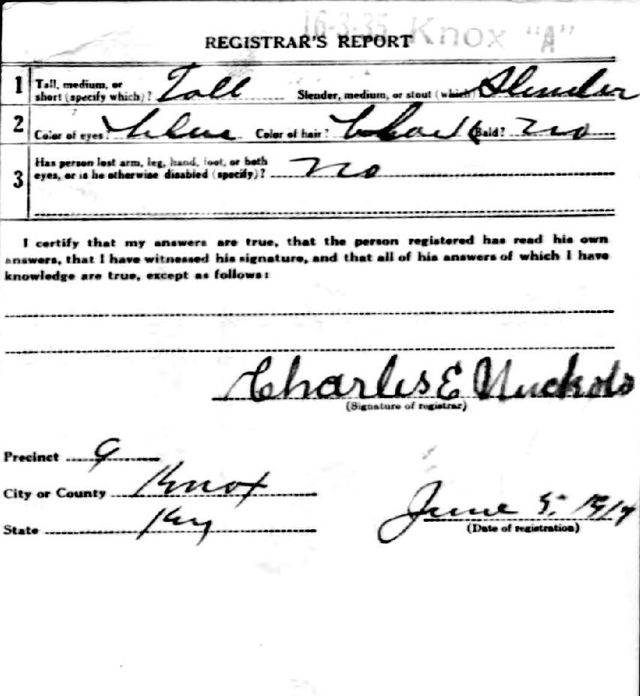 16-3-35 Knox "A"
REGISTRAR'S REPORT
1 Tall, medium, or short (specify which)? Tall Slender, medium, or stout (which)? Slender
2 Color of eyes? blue Color of hair? black Bald? no
3 Has person lost arm, leg, hand, foot, or both
eyes, or is he otherwise disabled (specify)? no
I certify that my answers are true, that the person registered has read his own
answers, that I have witnessed his signature, and that all of his answers of which I have
knowledge are true, except as follows:
Charles E Nuckols
(Signature of registrar)
Precinct 9
City or County Knox
State Ky
June 5, 1917
(Date of registration)